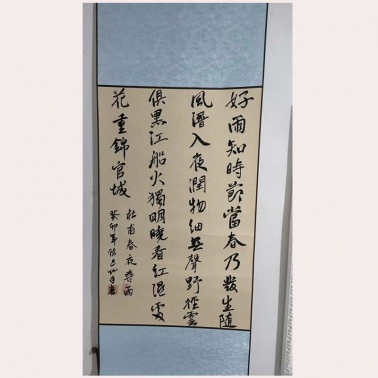 好雨知時節當春乃發生隨
風潛入夜潤物細無聲野徑雲
俱黑江船火獨明曉看紅濕處
花重錦官城
杜甫春夜喜雨
癸卯年